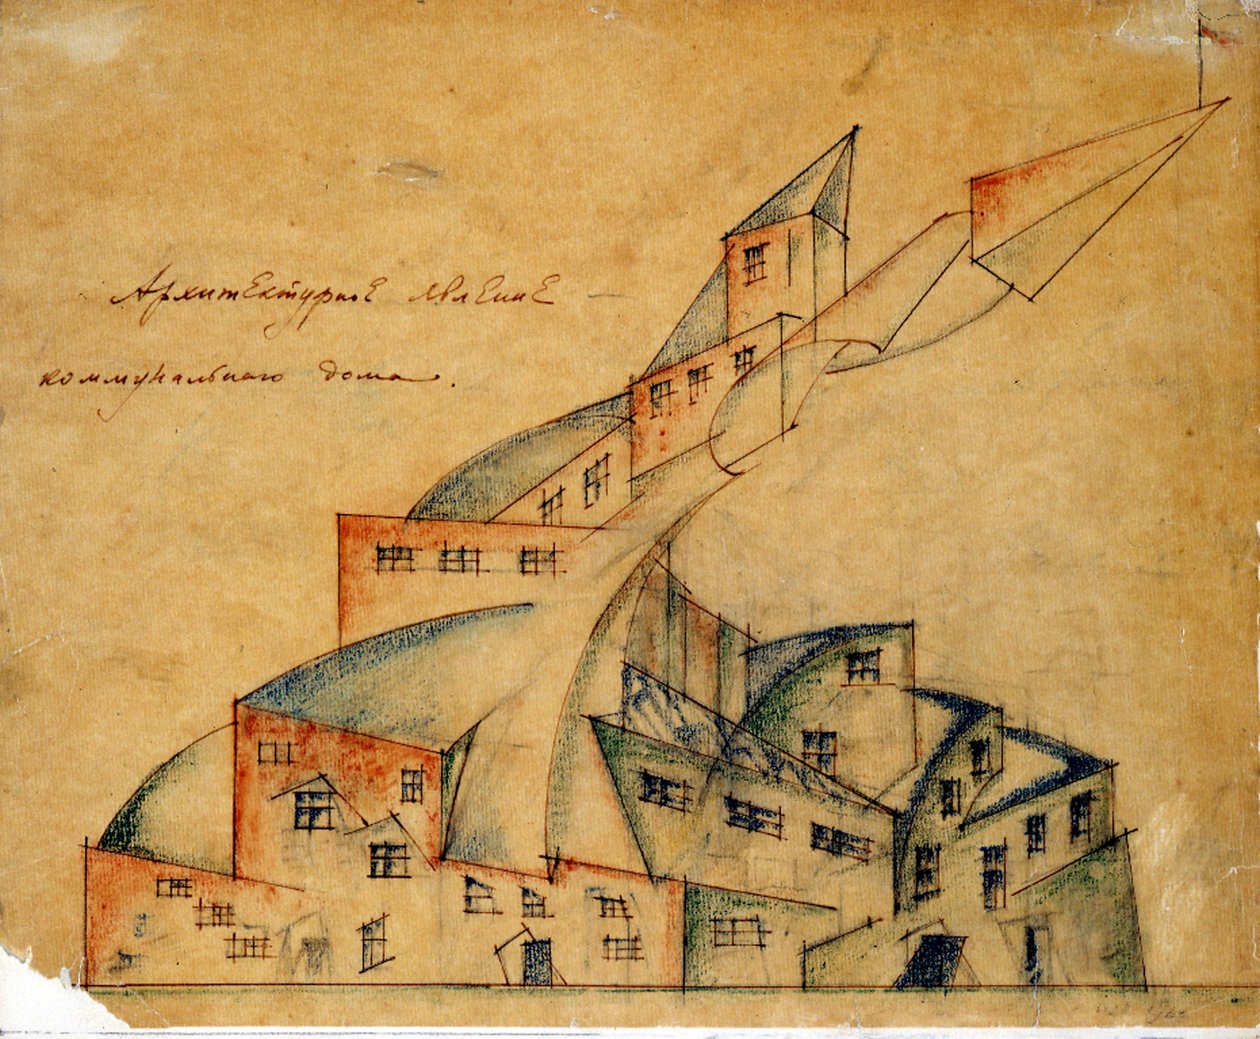 Архитектурное явление
коммунального дома.